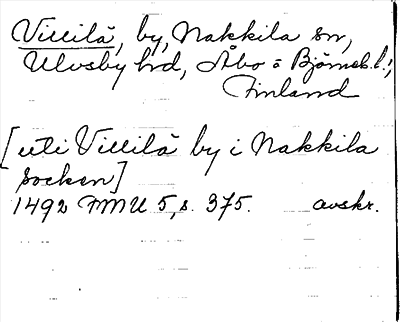 Villilä, by, Nakkila sn,
Ulvsby hd, Åbo o Björneb. l.,
Finland
[uti Villilä by i Nakkila
socken]
1492 FMU 5, s. 375. avskr.